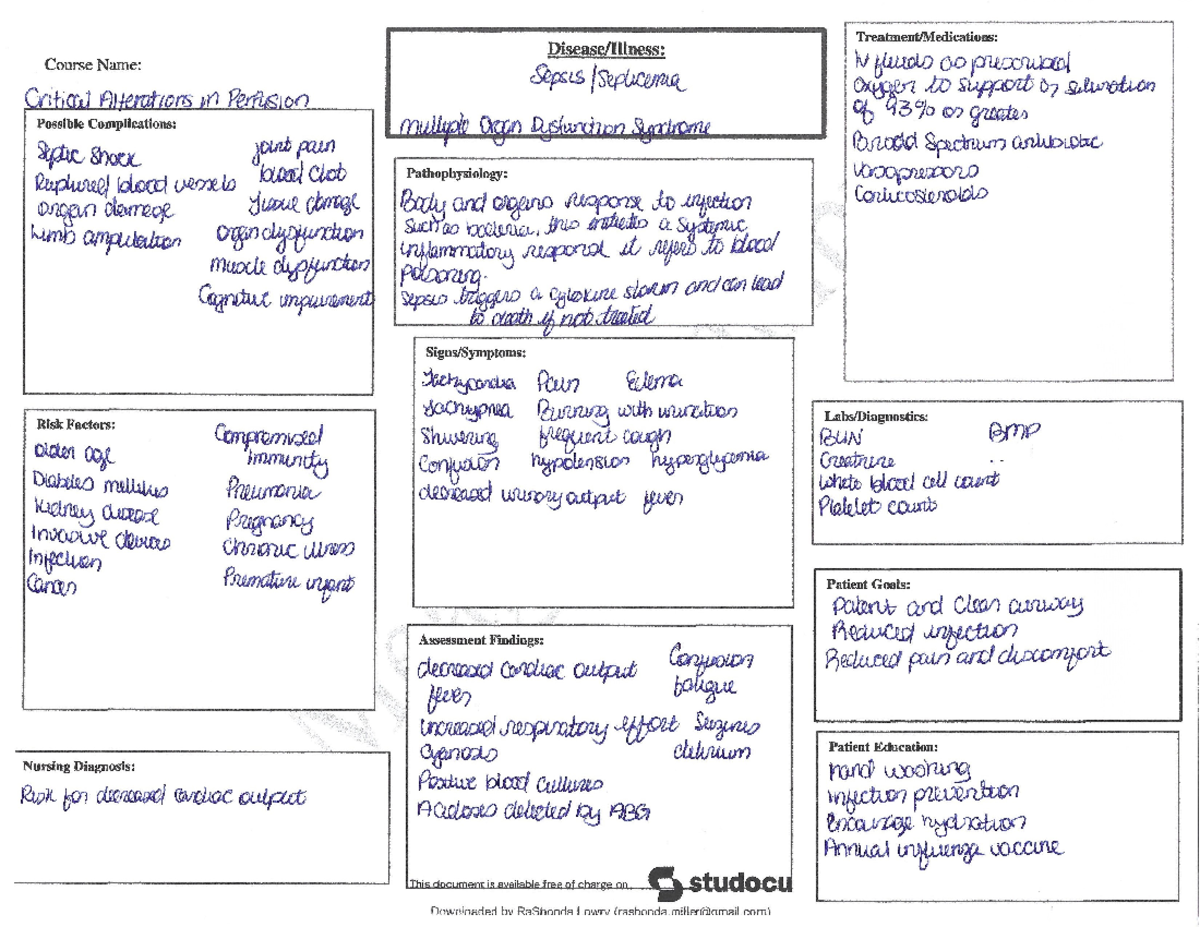 Course Name:
Critical Alterations in Perfusion
Disease/Illness:
Sepsis/Septicemia
Multiple Organ Dysfunction Syndrome
Treatment/Medications:
IV fluids as prescribed
Oxygen to support O2 saturation
of 93% or greater
Broad Spectrum antibiotic
Vasopressors
Corticosteroids
Possible Complications:
Septic Shock
Ruptured blood vessels
Organ damage
Limb amputation
joint pain
blood clot
Tissue damage
Organ dysfunction
Muscle dysfunction
Cognitive impairement
Pathophysiology:
Body and organs response to infection
Such as bacteria, this initiates a systemic
inflammatory response it refers to blood
poisoning.
Sepsis triggers a cytokine storm and can lead
to death if not treated
Signs/Symptoms:
Tachycardia Pain Edema
Tachypnea Burning with urination
Shivering frequent cough
Confusion hypotension hyperglycemia
decreased urinary output fever
Risk Factors:
Older age
Diabetes mellitus
Kidney disease
Invasive devices
Infection
Cancer
Compromised
immunity
Pneumonia
Pregnancy
Chronic illness
Premature infant
Labs/Diagnostics:
BUN BMP
Creatnine
White blood cell count
Platelet count
Patient Goals:
Patent and Clear airway
Reduced infection
Reduced pain and discomfort
Assessment Findings:
decreased cardiac output Confusion
fever fatigue
increased respiratory effort Seizures
Cyanosis delirium
Positive blood cultures
Acidoses detected by ABG
Nursing Diagnosis:
Risk for decreased cardiac output
Patient Education:
Hand washing
Infection prevention
Encourage hydration
Annual influenza vaccine
This document is available free of charge on
studocu
Downloaded by RaShonda Lowry (rashonda.miller@gmail.com)